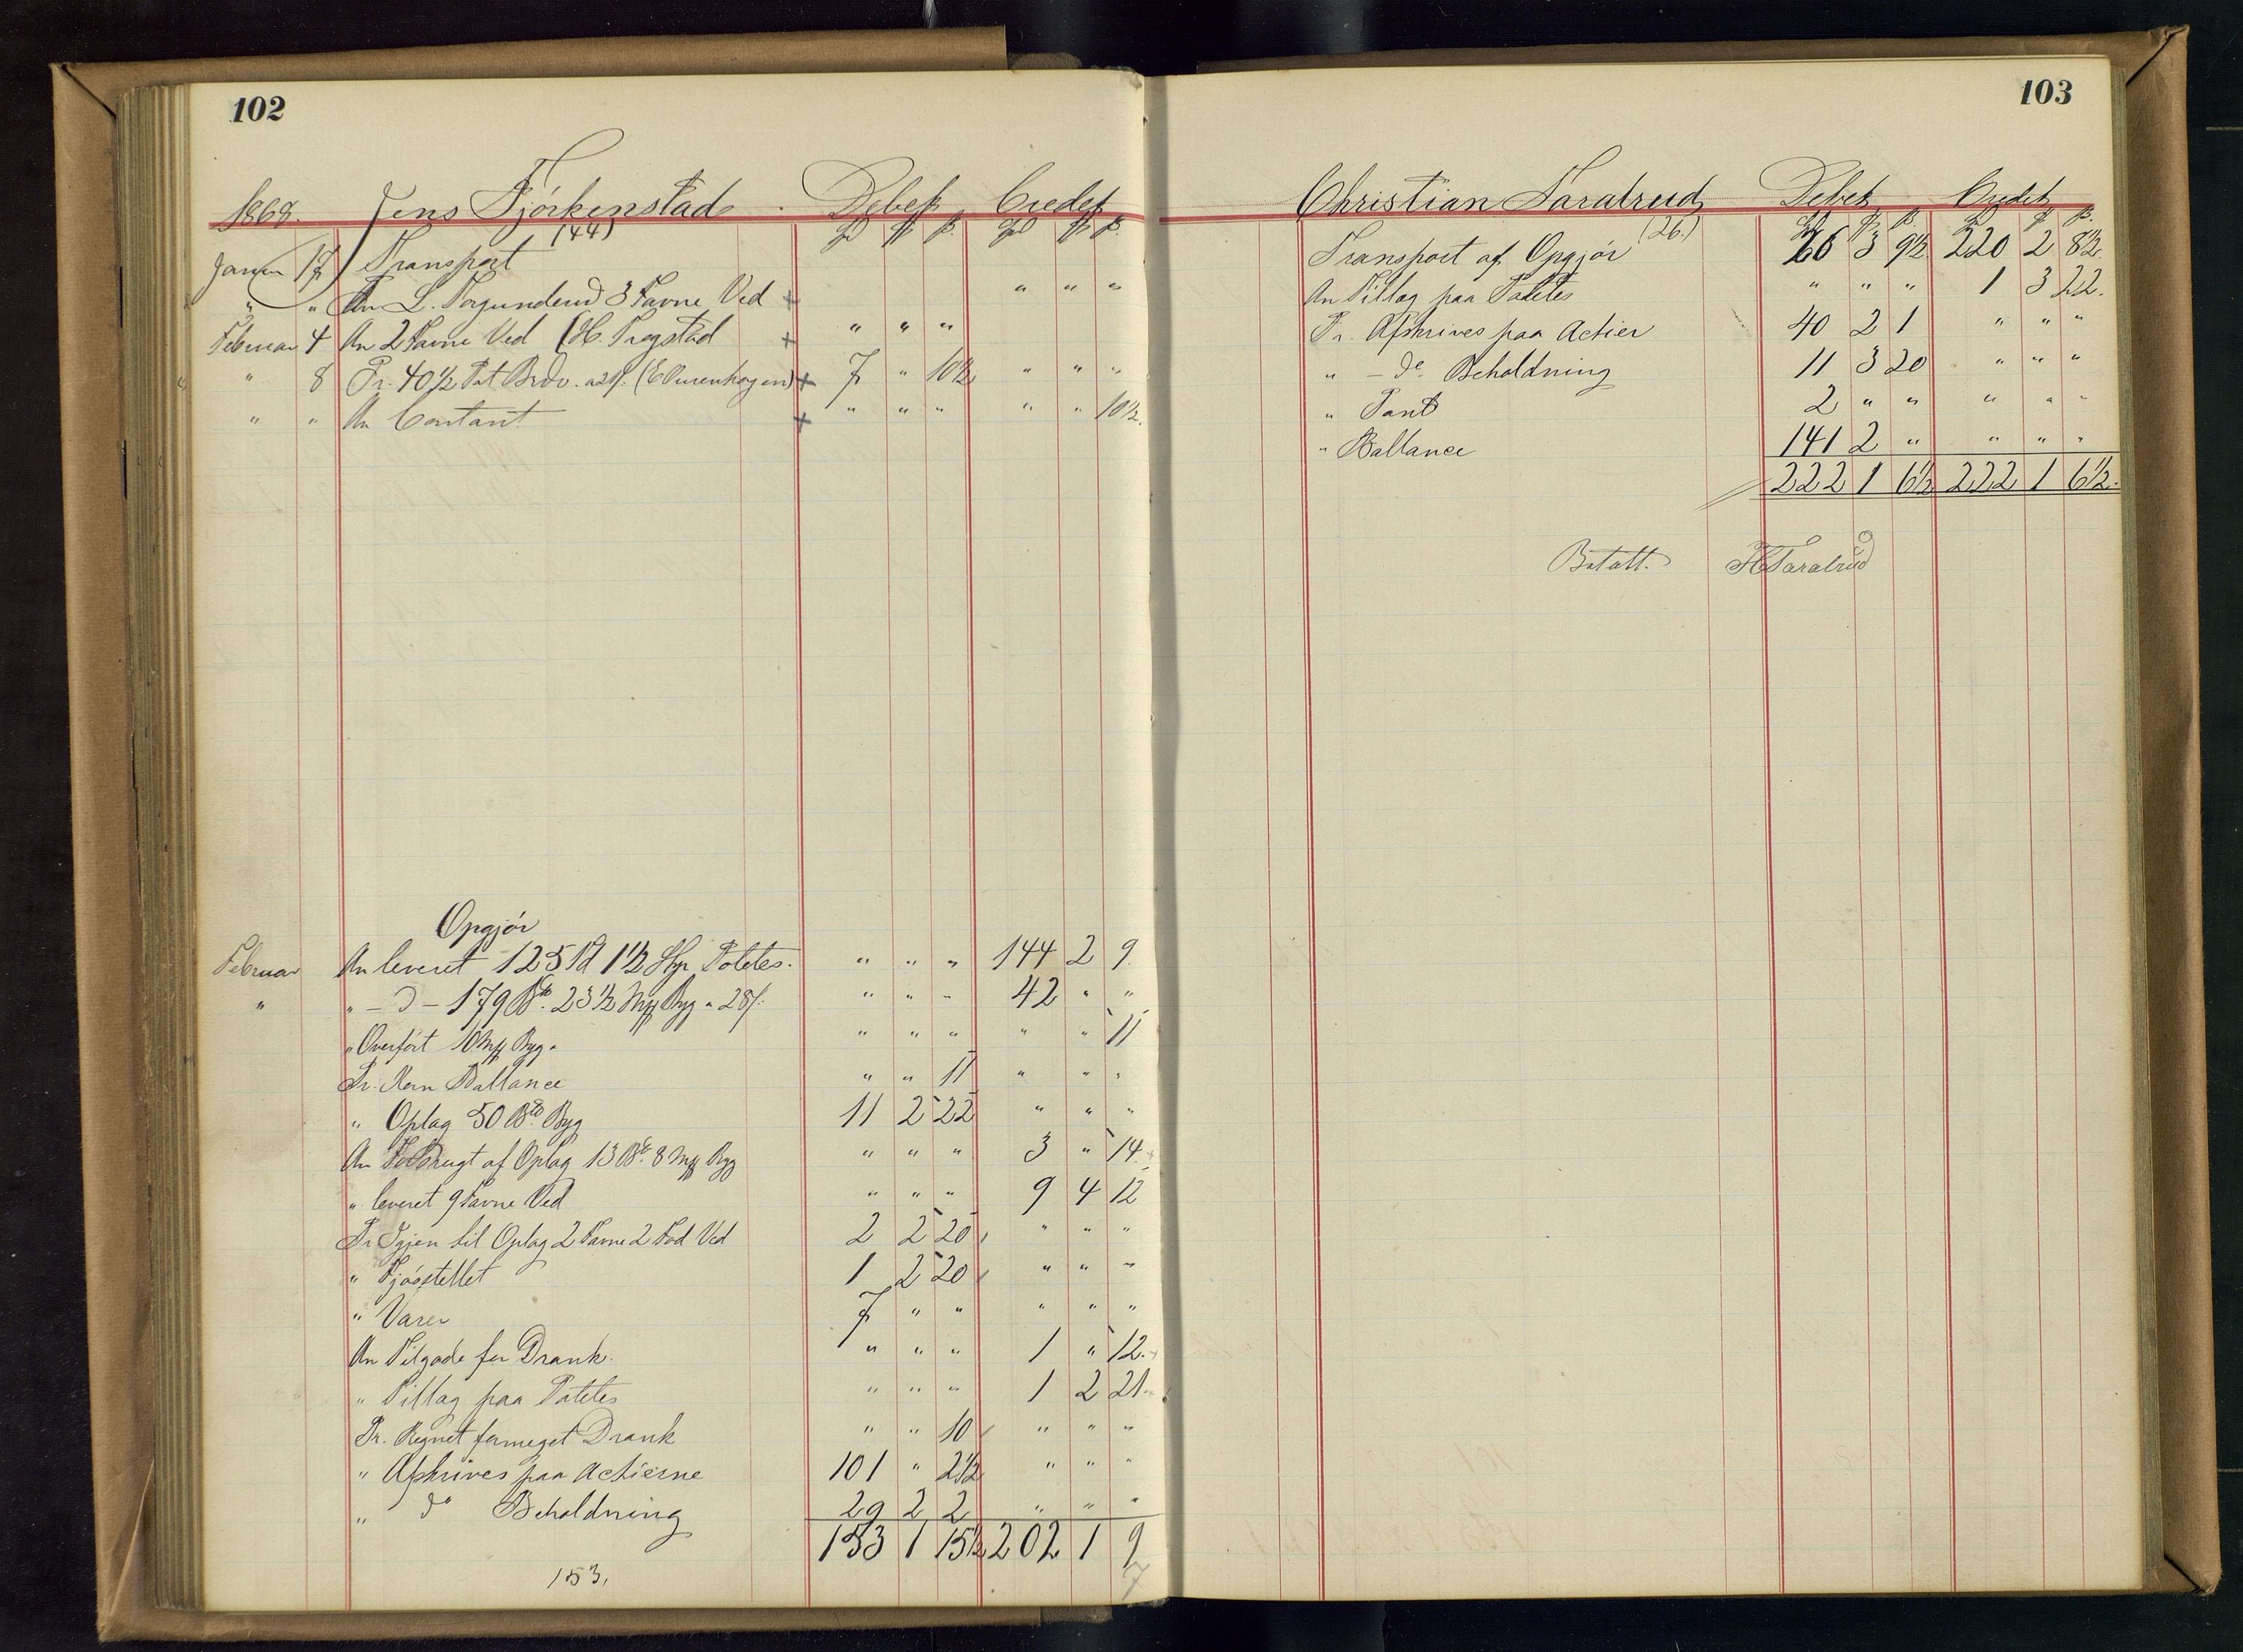 102
1868. Jens Fjörkenstad Debet Credet
Januar 17 Transport (44)
" " An L. Torgunderud 3 Favne Ved + " " "
Februar 4 An 2 Favne Ved (H. Tregstad + " " "
" 8 Pr. 40½ Pot Brdv. a 21 + 7 " 10½ " " "
" " An Contant + " " " " " 10½
Opgjör
Februar An leveret 125 Td 1½ Skp Potetes. " " " 144 2 9
" " – D – 179 23½ Byg a 28/. " " " 42 " "
" Overfört 10 Byg. " " " " " 11
Pr. Korn Ballance " " 11 " " "
" Oplag 50 Byg 11 2 22 " " "
An Forbrugt af Oplag 13 8 Byg " " " 3 " 14
" leveret 9 Favne Ved " " " 9 4 12
Pr Igjen til Oplag 2 Favne 2 Fod Ved 2 2 20 " " "
" Fjösstellet 1 2 20 " " "
" Varer 7 " " " " "
An Tilgode for Drank. " " " 1 " 12
" Tillæg paa Potetes " " " 1 2 21
Pr. Regnet formeget Drank " " 10 " " "
" Afskrives paa Actierne 101 " 2½ " " "
" do Beholdning 29 2 2 " " "
153 1 15½ 202 1 9
153, 7
103
Christian Taralrud Debet Credet
Transport af Opgjör (26.) 26 3 9½ 220 2 8½
An Tillæg paa Potetes " " " 1 3 22.
Pr. Afskrives paa Actier 40 2 1 " " "
" – do Beholdning 11 3 20 " " "
" Pant 2 " " " " "
" Ballance 141 2 " " " "
222 1 6½ 222 1 6½.
Betalt. H Taralrud